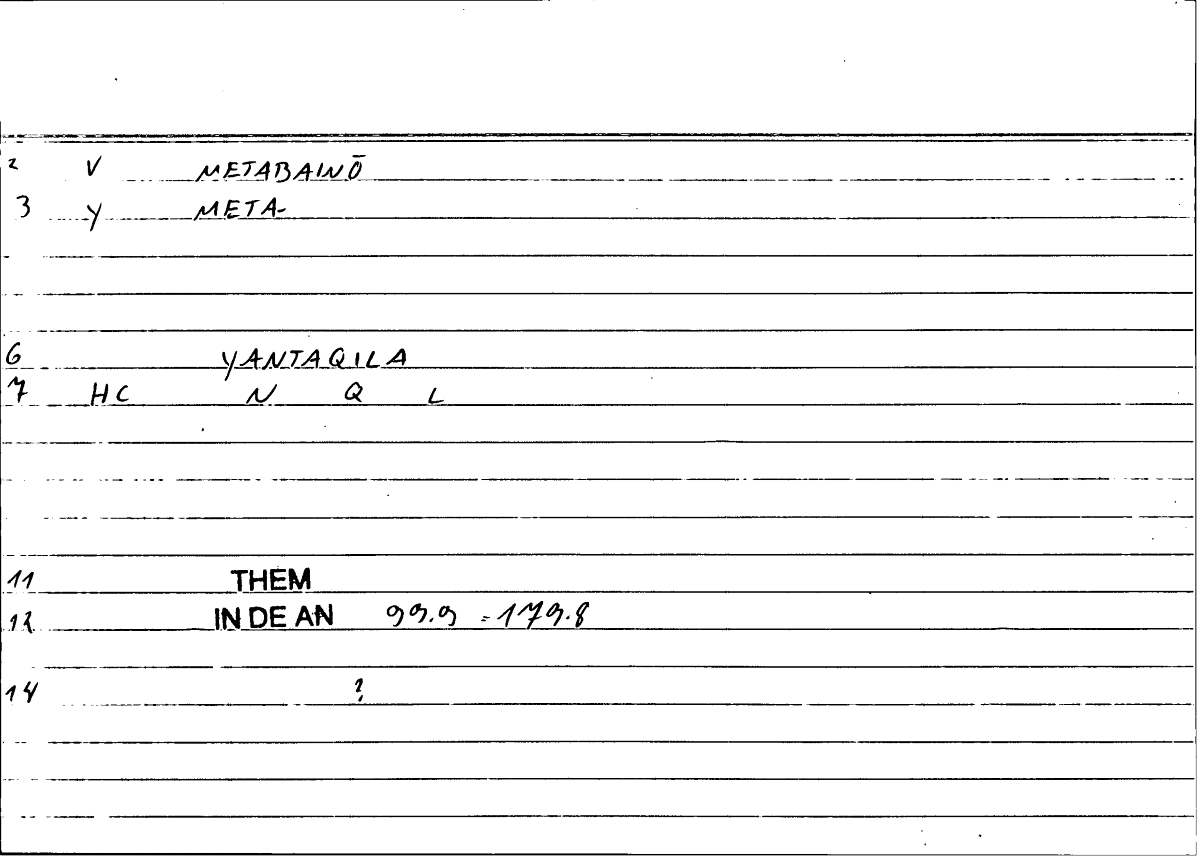 2 V METABAINŌ
3 Y META-
6 YANTAQILA
7 HC N Q L
11 THEM
12 IN DE AN 99.9 = 179.8
14 ?